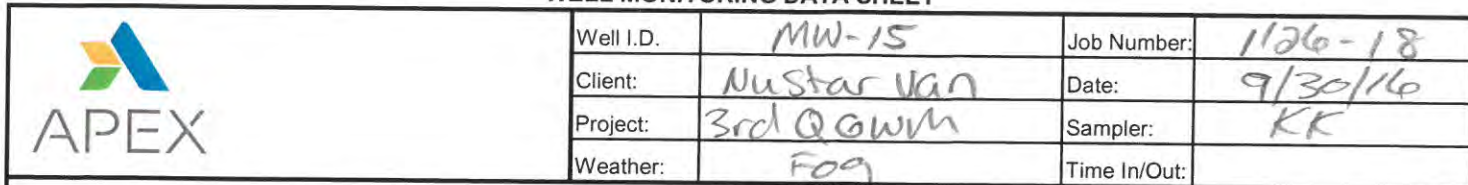 WELL MONITORING DATA SHEET
APEX
Well I.D. MW-15 Job Number: 1126-18
Client: NuStar Van Date: 9/30/16
Project: 3rd Q GWM Sampler: KK
Weather: Fog Time In/Out: